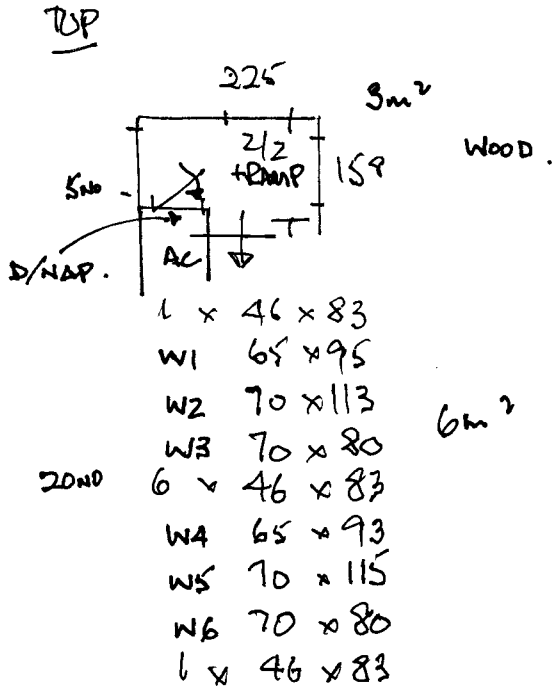 TOP
225
3m²
2/2
+RAMP
159
WOOD.
5NO
D/NAP.
AC
1 x 46 x 83
W1 65 x 95
W2 70 x 113
W3 70 x 80
6m²
20NO 6 x 46 x 83
W4 65 x 93
W5 70 x 115
W6 70 x 80
1 x 46 x 83